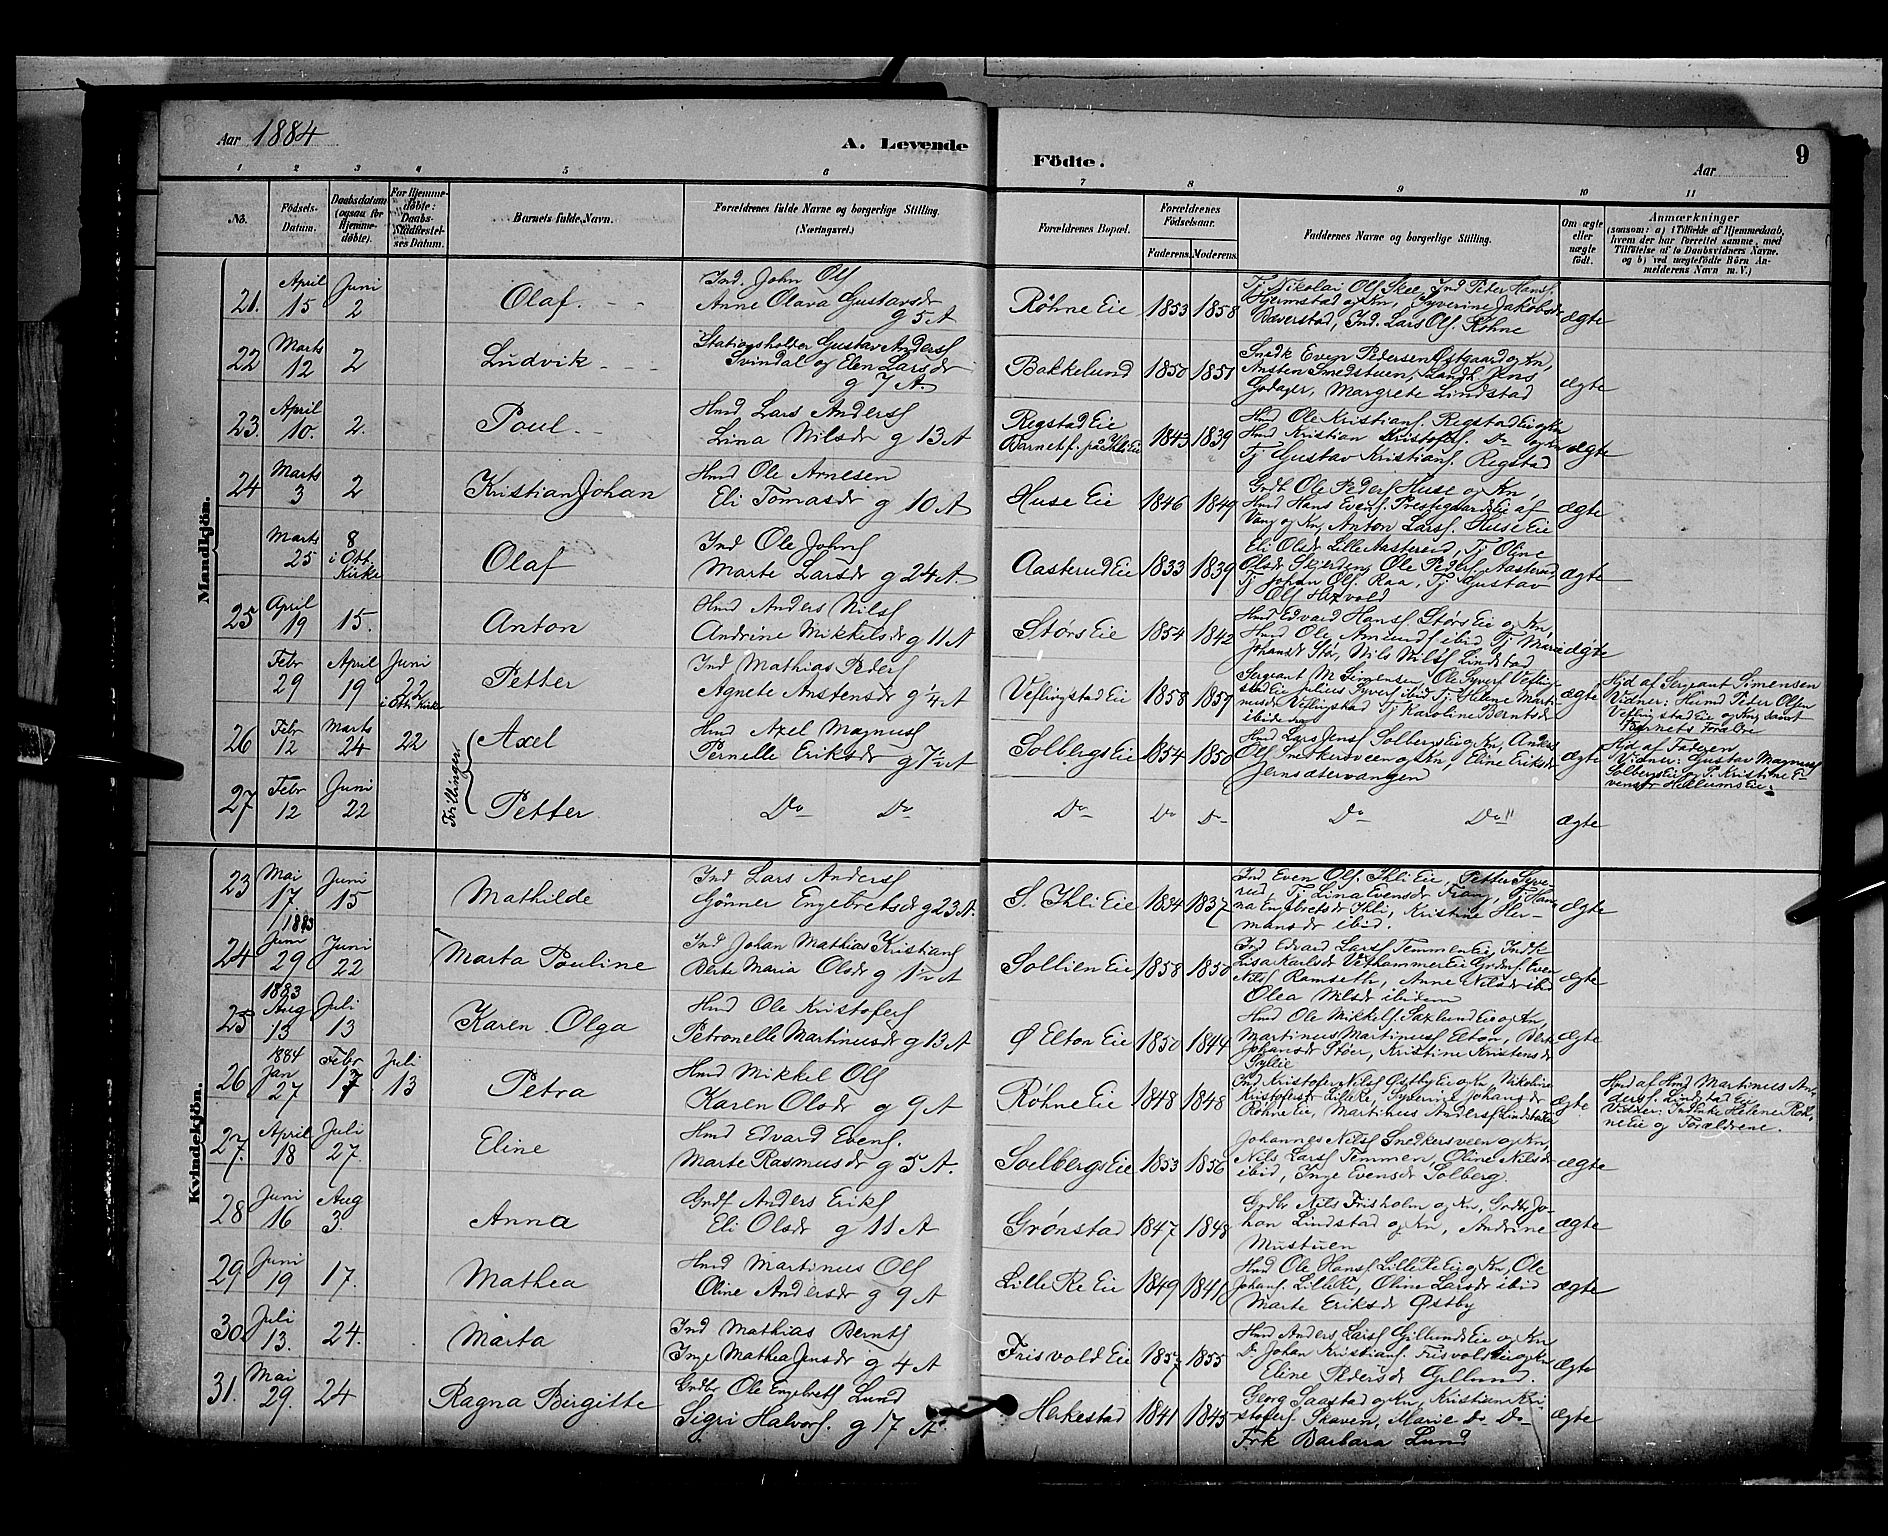 Aar 1884
A. Levende
Födte.
Aar
9
1 2 3 4 5 6 7 8 9 10 11
No.
Födsels-Datum.
Daabsdatum (ogsaa for Hjemmedöbte).
For Hjemmedöbte: Daabs-Stadfæstelses Datum.
Barnets fulde Navn.
Forældrenes fulde Navne og borgerlige Stilling. (Næringsvei.)
Forældrenes Bopæl.
Forældrenes Födselsaar.
Faderens. Moderens.
Faddernes Navne og borgerlige Stilling.
Om ægte eller uægte födt.
Anmærkninger
(saasom: a) i Tilfælde af Hjemmedaab, hvem der har forrettet samme, med Tilföielse af to Daabsvidners Navne, og b) ved uægtefödte Börn Anmelderens Navn m. V.)
Mandkjön.
21. April 15 Juni 2 Olaf.
Ind. John Ols
Anne Olava Gustavsdr g 5 A
Røhne Eie 1853 1858
Tj Nikolai Ols Skee, Ind Peter Hans
Hjemstad og Kn, Syverine Jakobsdr
Bæverstad, Ind. Lars Ols Røhne
ægte
22 Marts 12 2 Ludvik
Stationsholder Gustav Anders
Svindal og Elen Larsdr
g 7 A.
Bakkelund 1850 1851
Snedk Even Pedersen Østgaard og Kn,
Ansten Smedstuen, Landh Jens
Godager, Margrete Lindstad
ægte
23. April 10. 2. Poul
Hmd Lars Anders
Lina Nilsdr g 13 A
Regstad Eie
Barnet f. på Ihli Eie
1843 1839
Hmd Ole Kristians. Regstad Eie og Kn
Hmd Kristian Kristofers. Do og Kn
Tj Gustav Kristians. Regstad
ægte
24 Marts 3 2 Kristian Johan
Hmd Ole Arnesen
Eli Tomasdr g 10 A
Huse Eie 1846 1849
Grdb Ole Peders Huse og Kn,
Hmd Hans Evens. Prestegaards Eie af
Vang og Kn, Anton Lars. Huse Eie
ægte
Marts 25 8 i Ott. Kirke Olaf
Ind Ole Johns
Marte Larsdr g 24 A.
Aasterud Eie 1833 1839
Eli Olsdr Lille Aasterud, Tj Oline
Olsdr Skjerden, Ole Peders Aasterud,
Tj Johan Ols. Raa, Tj Gustav
Ols Hexvold
ægte
25 April 19 15. Anton
Hmd Anders Nils
Andrine Mikkelsdr g 11 A
Størs Eie 1854 1842
Hmd Edvard Hans Størs Eie og Kn,
Hmd Ole Amunds ibid, Tj Marie
Johansdr Stør, Nils Nils Lindstad
ægte
Febr 29 April 19 Juni 22 i Ott. Kirke Petter
Ind Mathias Peders
Agnete Anstensdr g 1/4 A
Veflingstad Eie 1858 1857
Sergeant M Simensen, Ole Syvers Vefling-
stad Eie Julius Syvers ibid, Tj Helene Marti-
nusdr Veflingstad Tj Karoline Berntsdr
ibidem
ægte
Hjd af Sergeant Simensen
Vidner: Husmd Peter Olsen
Veflingstad Eie og Kn, samt
Barnets Forældre
26 Febr 12 Marts 24 22 Axel
Tvillinger
Hmd Axel Magnus
Pernelle Eriksdr g 7 1/2 A
Solbergs Eie 1854 1850
Hmd Lars Jens Solbergs Eie og Kn, Anders
Ols Snedkersveen og Kn, Eline Eriksdr
Jernsætervangen
ægte
Hjd af Faderen
Vidner: Gustav Magnus
Solbergs Eie og P. Kristine E-
vensdr Hellums Eie.
27 Febr 12 Juni 22 Petter
Do Do Do Do Do Do Do ægte
Kvindekjön.
23 Mai 17. Juni 15 Mathilde
Ind Lars Anders
Gønner Engebretsdr g 23 A.
S. Ihli Eie 1834 1837
Ind Even Ols. Ihli Eie, Petter Syve-
rud, Tj Lina Evensdr Frang, Tj Han
na Engebretsdr Ihli, Kristine Her-
mansdr ibid.
ægte
24 1883 Juni 29 Juni 22 Marta Pouline
Ind Johan Mathias Kristians
Berte Maria Olsdr g 1 1/2 A
Sollien Eie 1858 1850
Ind Edvard Lars Temmen Eie, Indk
Lisa Karlsdr Vethammer Eie Grdms. Even
Nils Ramseth, Anne Nilsdr ibid
Olea Nilsdr ibidem
ægte
25 1883 Aug 13 Juli 13 Karen Olga
Hmd Ole Kristofers
Petronelle Martinusdr g 13 A
Ø Elton Eie 1850 1844
Hmd Ole Mikkels Saxlund Eie og Kn,
Martinus Martinus Elton, Berte
Johansdr Støer, Kristine Kristensdr
Gyllie
ægte
26 1884 Jan 27 Febr 17 Juli 13 Petra
Hmd Mikkel Ols
Karen Olsdr g 9 A
Røhne Eie 1848 1848
Ind Kristofer Nils Østby Eie og Kn Nikoline
Kristofersdr Lille Re, Syverine Johansdr
Røhne Eie, Martinus Anders Lindstad Eie
ægte
Hmd af Hmd Martinus An-
ders. Lindstad Eie
Vidner: Indenke Helene Røh-
ne Eie og Forældrene.
27. April 18 Juli 27. Eline
Hmd Edvard Evens.
Marte Rasmusdr g 5 A.
Soelbergs Eie 1853 1856
Johannes Nils Snedkersveen og Kn,
Nils Lars Temmen, Oline Nilsdr
ibid, Inge Evensdr Solberg.
ægte
28 Juni 16 Aug 3. Anna
Grdf Anders Eriks
Eli Olsdr g 11 A
Grønstad 1847 1848
Grdbr Nils Frisholm og Kn, Grdbr Jo-
han Lindstad og Kn, Andrine
Mustuen
ægte
29 Juni 19 17. Mathea
Hmd Martinus Ols
Oline Andersdr g 9 A
Lille Re Eie 1849 1846
Hmd Ole Hans Lille Re Eie og Kn, Ole
Johans. Lille Re, Oline Larsdr ibid
Marte Eriksdr Østby
ægte
30. Juli 13. 24. Marta
Ind Mathias Bernts
Inge Mathea Jensdr g 4 A
Frisvold Eie 1857 1855
Hmd Anders Lars Gillunds Eie og Kn
Do Johan Kristians. Frisvold Eie og Kn
Eline Pedersdr Gillund.
ægte
31. Mai 29. 24 Ragna Birgitte
Grdbr Ole Engebrets Lund
Sigri Halvors. g 17 A
Herkestad 1841 1845
Georg Saastad og Kn, Kristian Kri
stofers. Skaven, Marie Do Do
Frk Barbara Lund
ægte